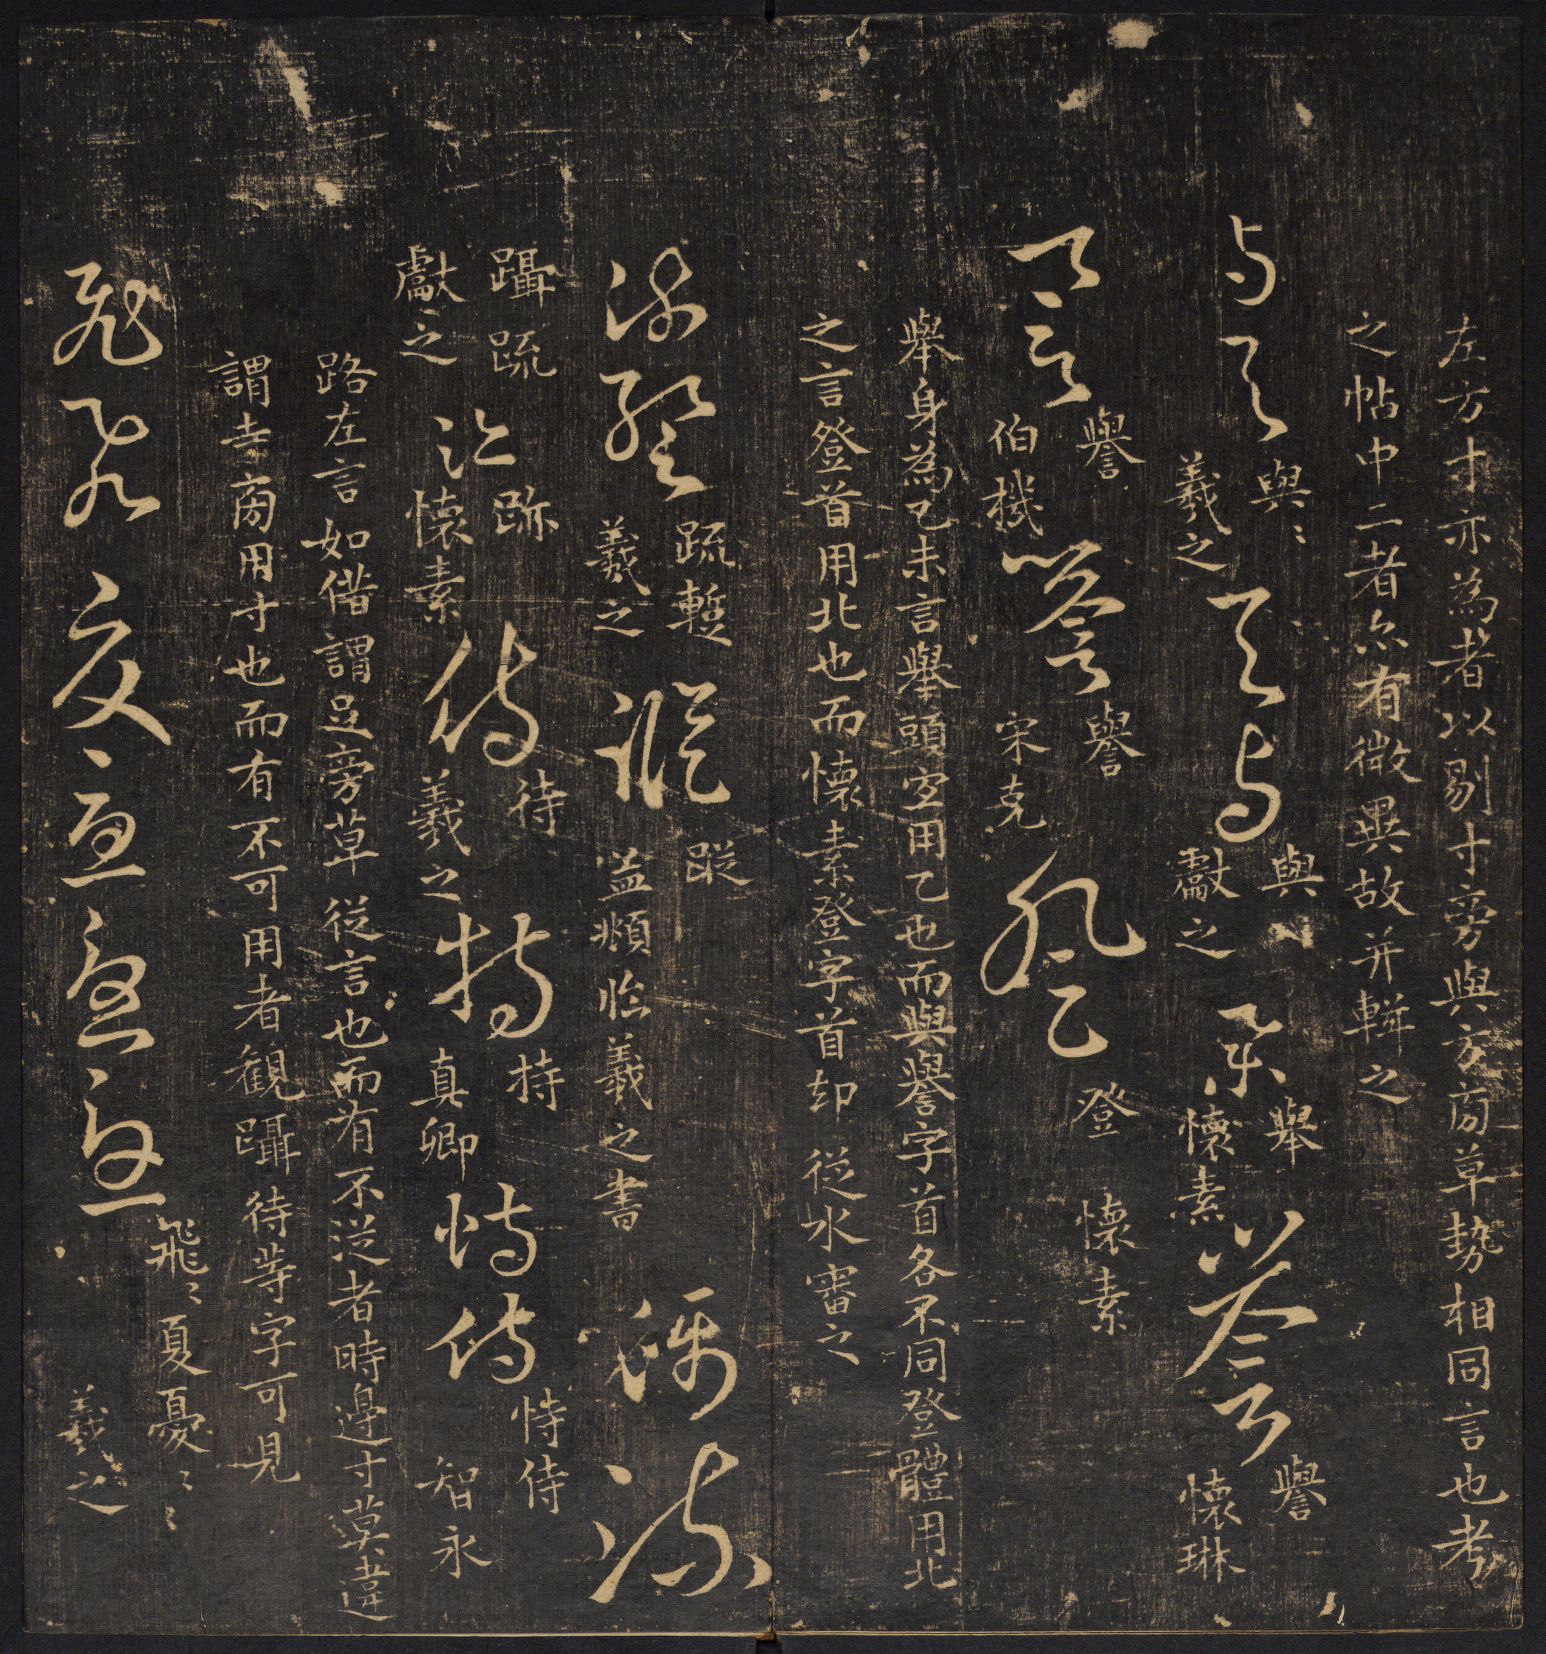 左方寸亦為者以剔寸旁與方商草勢相同言也考
之帖中二者亦有微異故并輯之
與與 與〻 羲之 與與 與〻 獻之 舉 舉 懷素 譽 譽 懷琳
譽 譽 伯機 譽 譽 宋克 登 登 懷素
舉身為乙未言舉頭空用乙也而與譽字首各不同登體用北
之言登首用北也而懷素登字首却從水審之
疏蹔 疏蹔 羲之 蹤 蹤 益頫臨羲之書 躡疏
躡疏 獻之 跡 跡 懷素 待 待 羲之 持 持 真卿 恃侍 恃侍 智永
路左言如借謂足旁草從言也而有不從者時邊寸莫違
謂寺商用寸也而有不可用者觀躡待等字可見
飛飛夏憂憂憂 飛〻夏憂〻〻 羲之